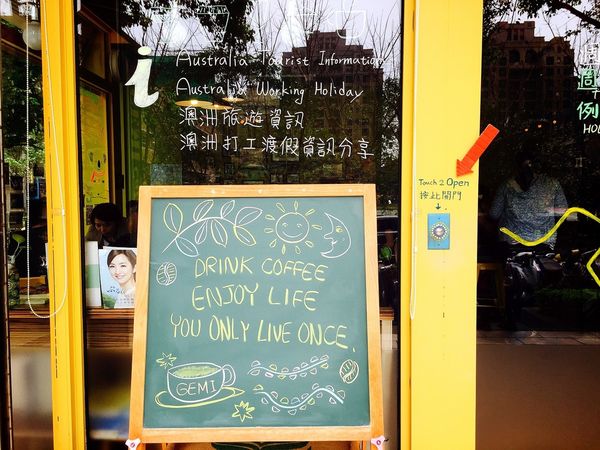 i
Australia Tourist Information
Australia Working Holiday
澳洲旅遊資訊
澳洲打工渡假資訊分享
Touch 2 Open
按此開門
DRINK COFFEE
ENJOY LIFE
YOU ONLY LIVE ONCE.
GEMI
週
例
HOL